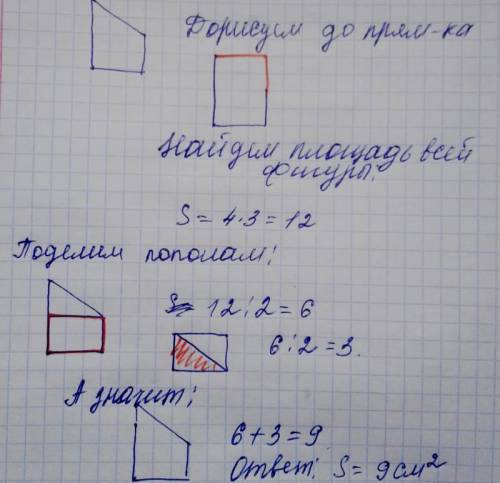 Дорисуем до прям-ка
Найдем площадь всей
фигуры:
S = 4·3 = 12
Поделим пополам:
S= 12:2 = 6
6:2 = 3.
А значит:
6+3 = 9
Ответ: S = 9 см²